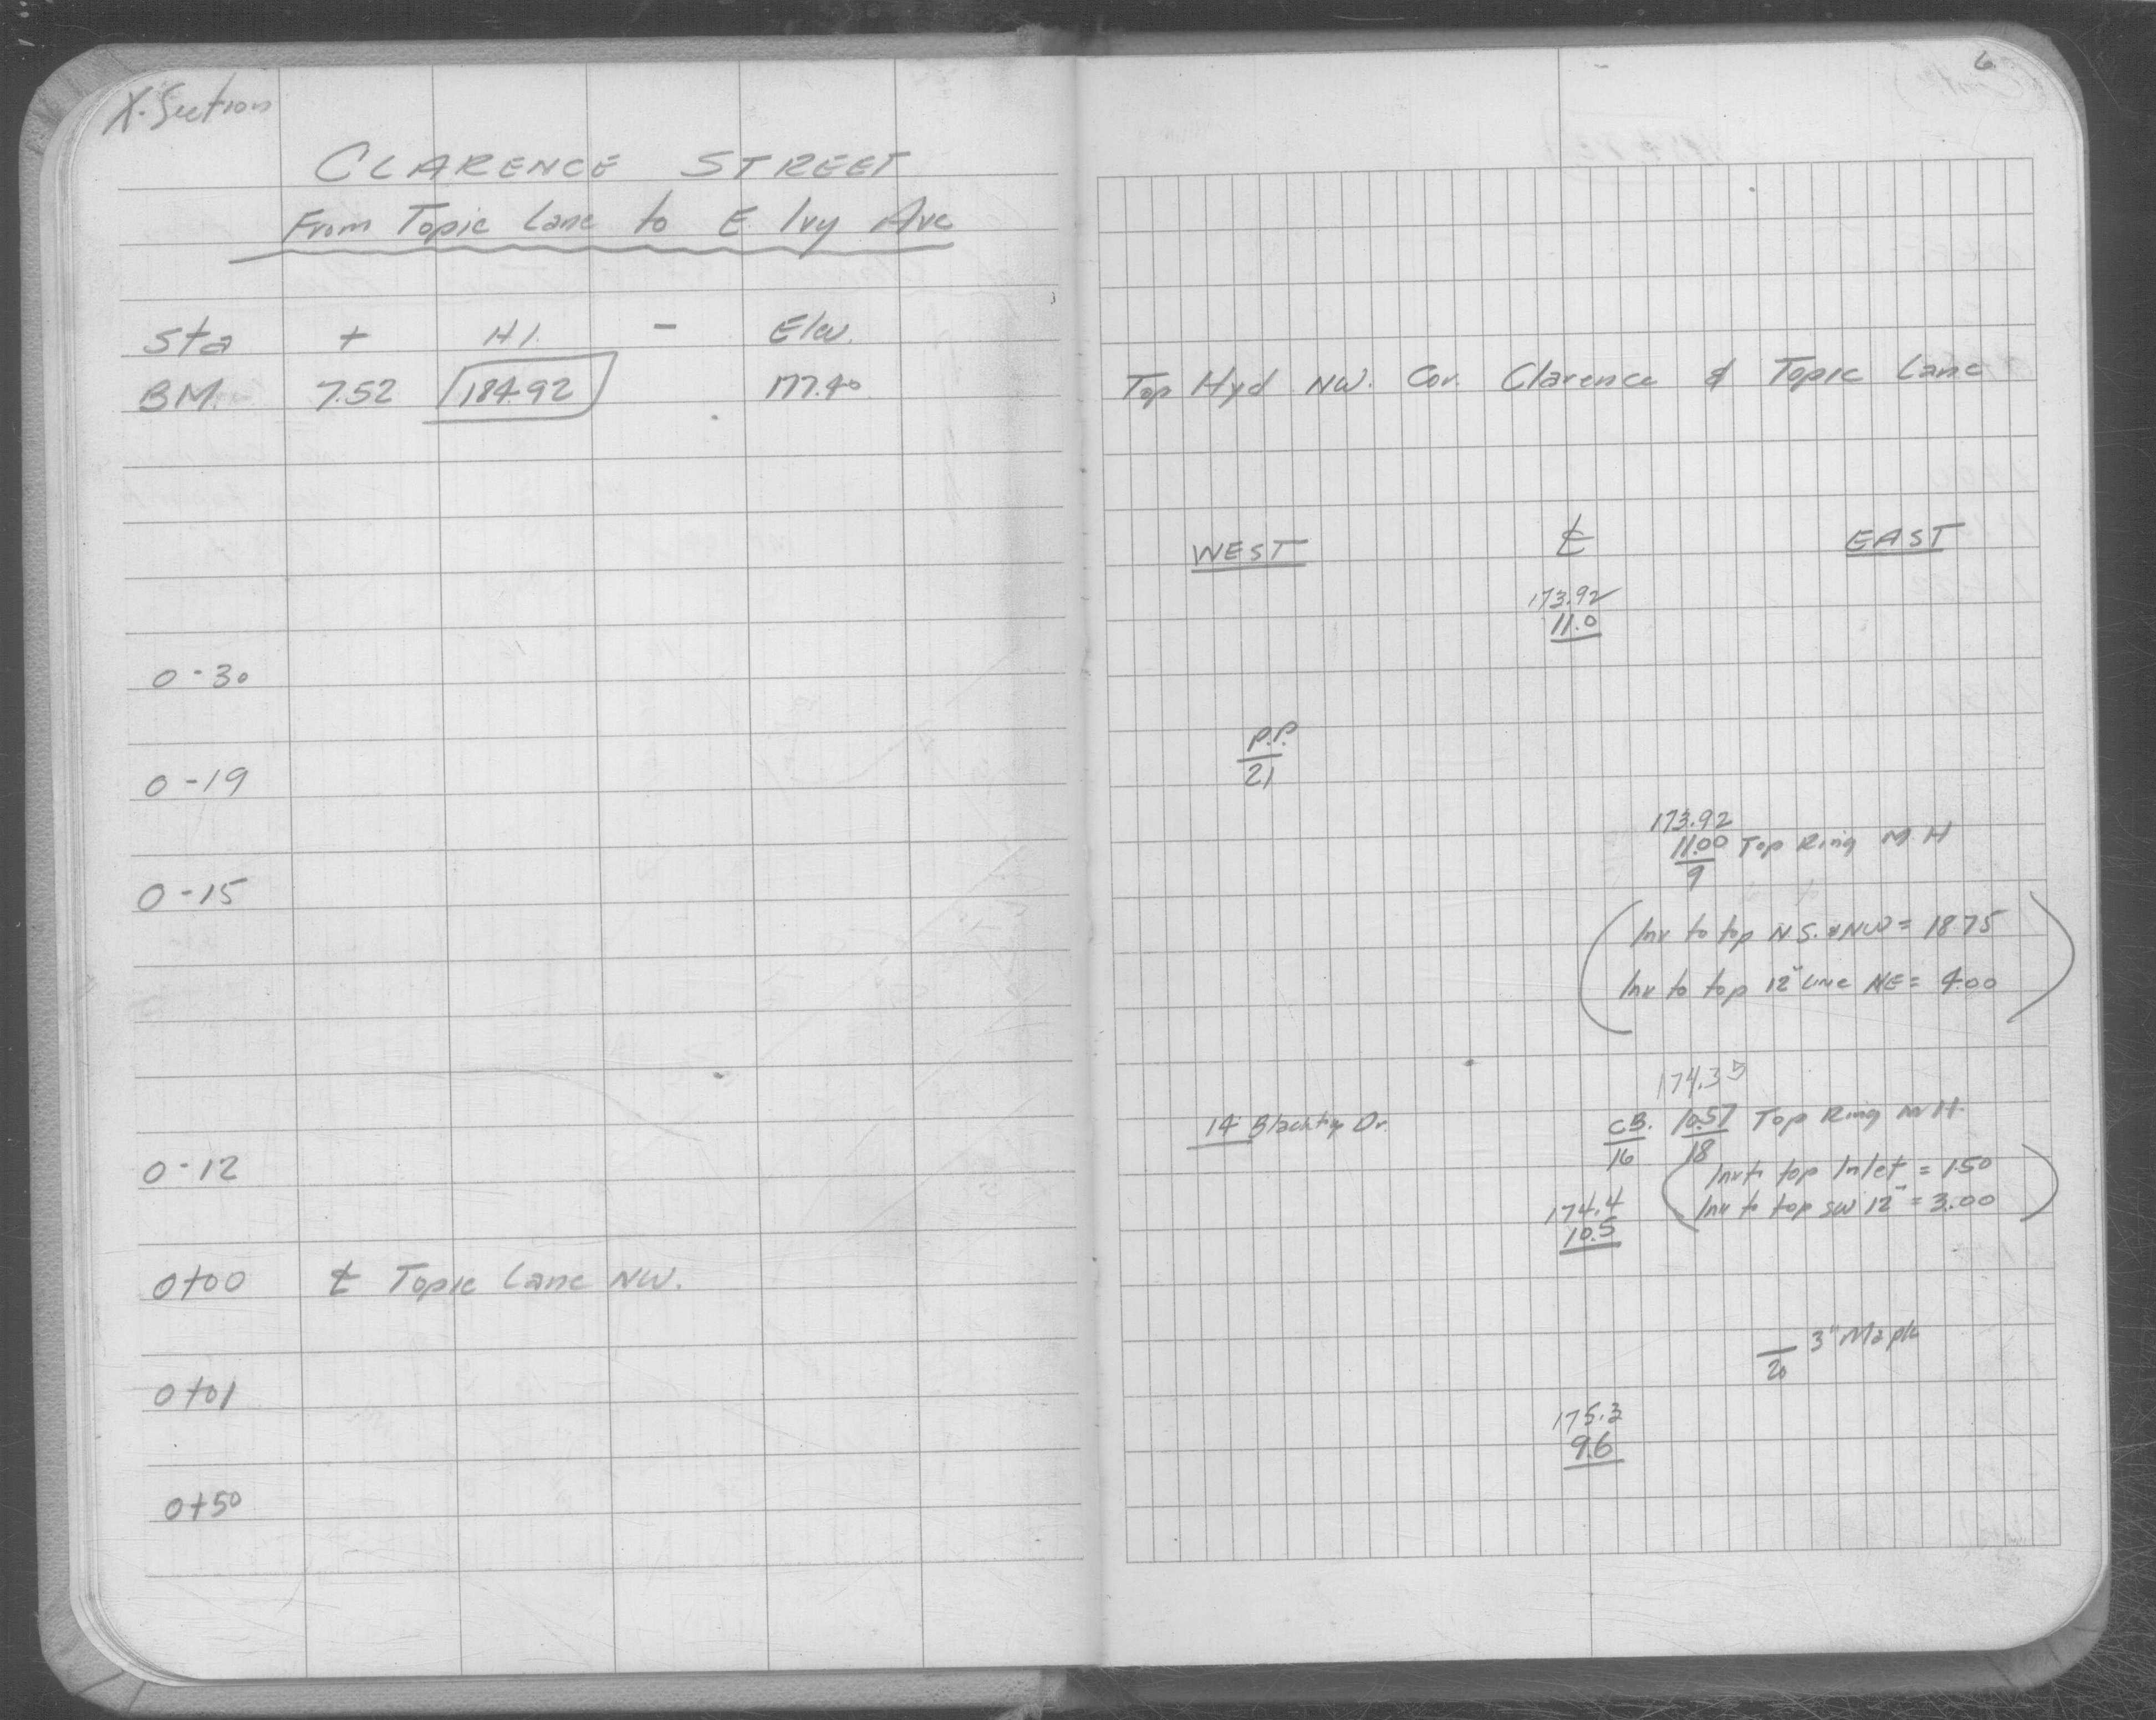 X-Section
CLARENCE STREET
From Topic Lane to E Ivy Ave
Sta + H.I. - Elev.
BM. 7.52 184.92 177.40
0-30
0-19
0-15
0-12
0+00 ℄ Topic Lane NW.
0+01
0+50
6
Top Hyd NW. Cor. Clarence & Topic Lane
WEST ℄ EAST
173.92
11.0
P.P.
21
173.92
11.00 Top Ring M.H
9
Inv to top N.S. & NW = 18.75
Inv to top 12" Line NE = 4.00
174.35
14' Blacktop Dr. CB. 10.57 Top Ring M.H.
16 18
Inv to top Inlet = 1.50
Inv to top SW 12" = 3.00
174.4
10.5
3" Maple
20
175.3
9.6